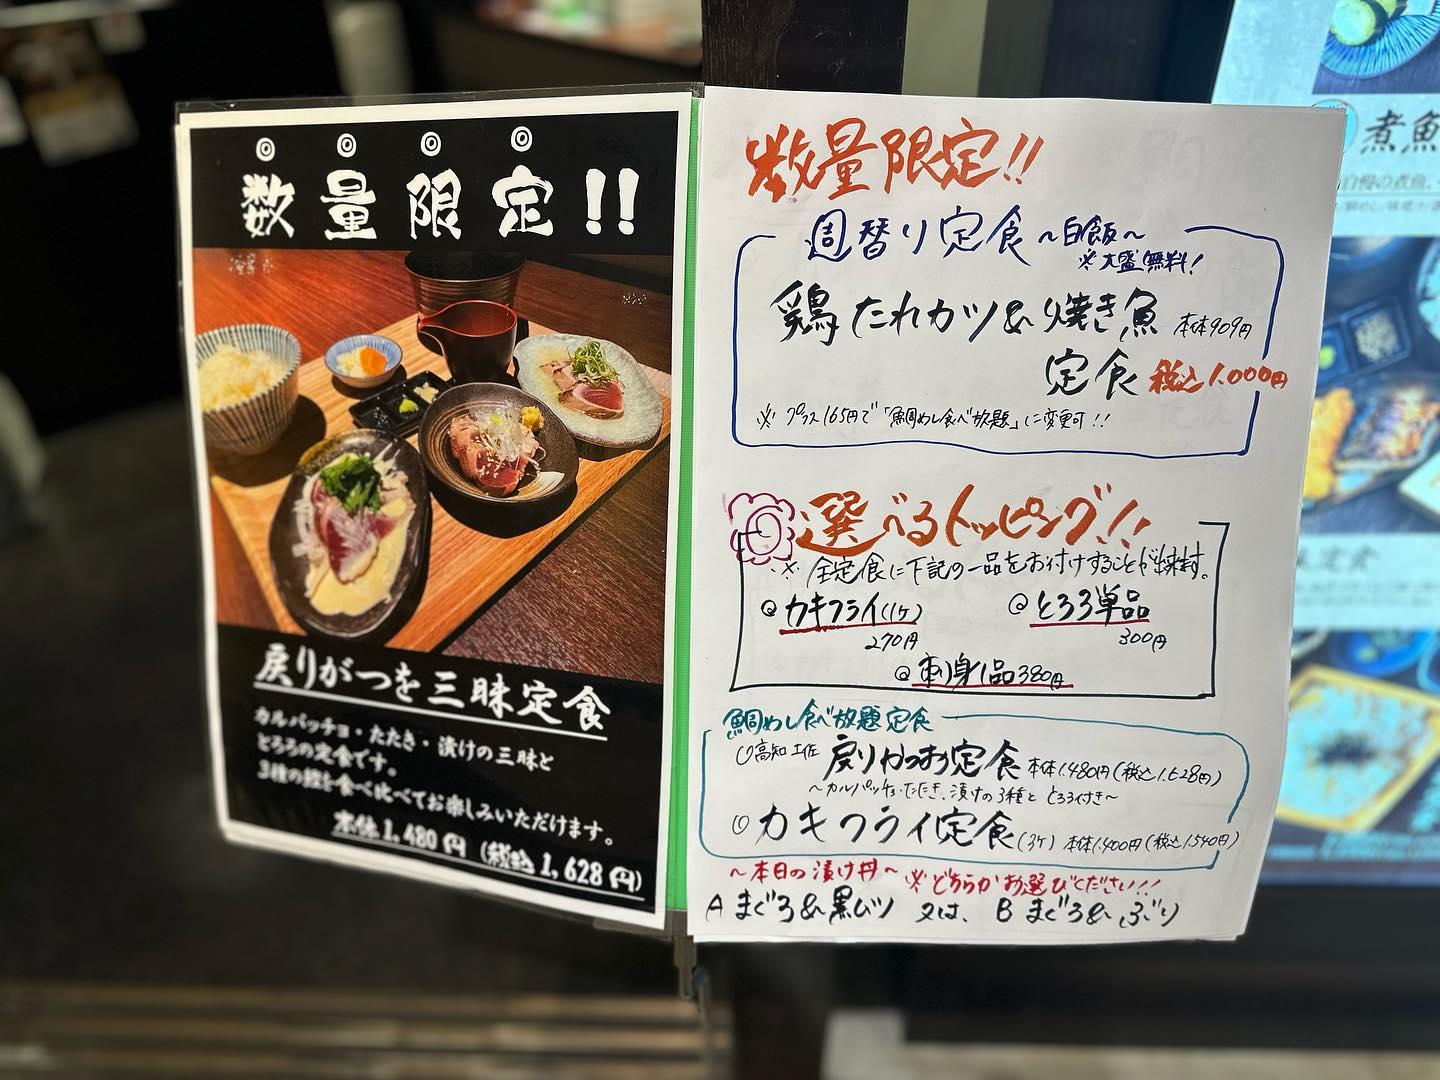 数量限定!!
戻りがつを三昧定食
カルパッチョ・たたき・漬けの三昧と
とろろの定食です。
3種の鰹を食べ比べてお楽しみいただけます。
本体1,480円(税込1,628円)
数量限定!!
週替り定食〜白飯〜
※大盛無料!
鶏たれカツ&焼き魚 本体909円
定食 税込1.000円
※プラス165円で「鯛めし食べ放題」に変更可!!
選べるトッピング!!
※全定食に下記の一品をお付けすることが出来ます。
カキフライ(1ケ)
270円
とろろ単品
300円
刺身1品380円
鯛めし食べ放題定食
高知土佐 戻りかつお定食 本体1.480円(税込1.628円)
〜カルパッチョ・たたき、漬けの3種ととろろ付き〜
カキフライ定食(3ケ) 本体1.400円(税込1.540円)
〜本日の漬け丼〜 ※どちらかお選びください!!!
A まぐろ&黒ムツ 又は、B まぐろ&ぶり
煮魚
定食